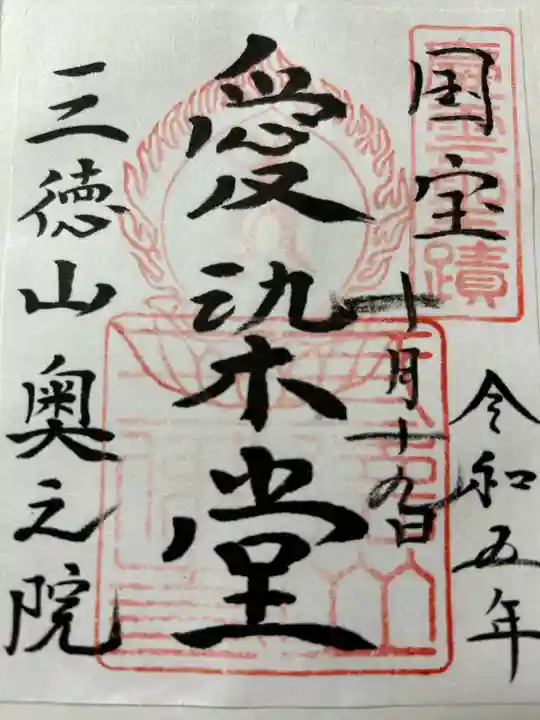 国宝
令和五年
十月十九日
愛染堂
三徳山 奥之院